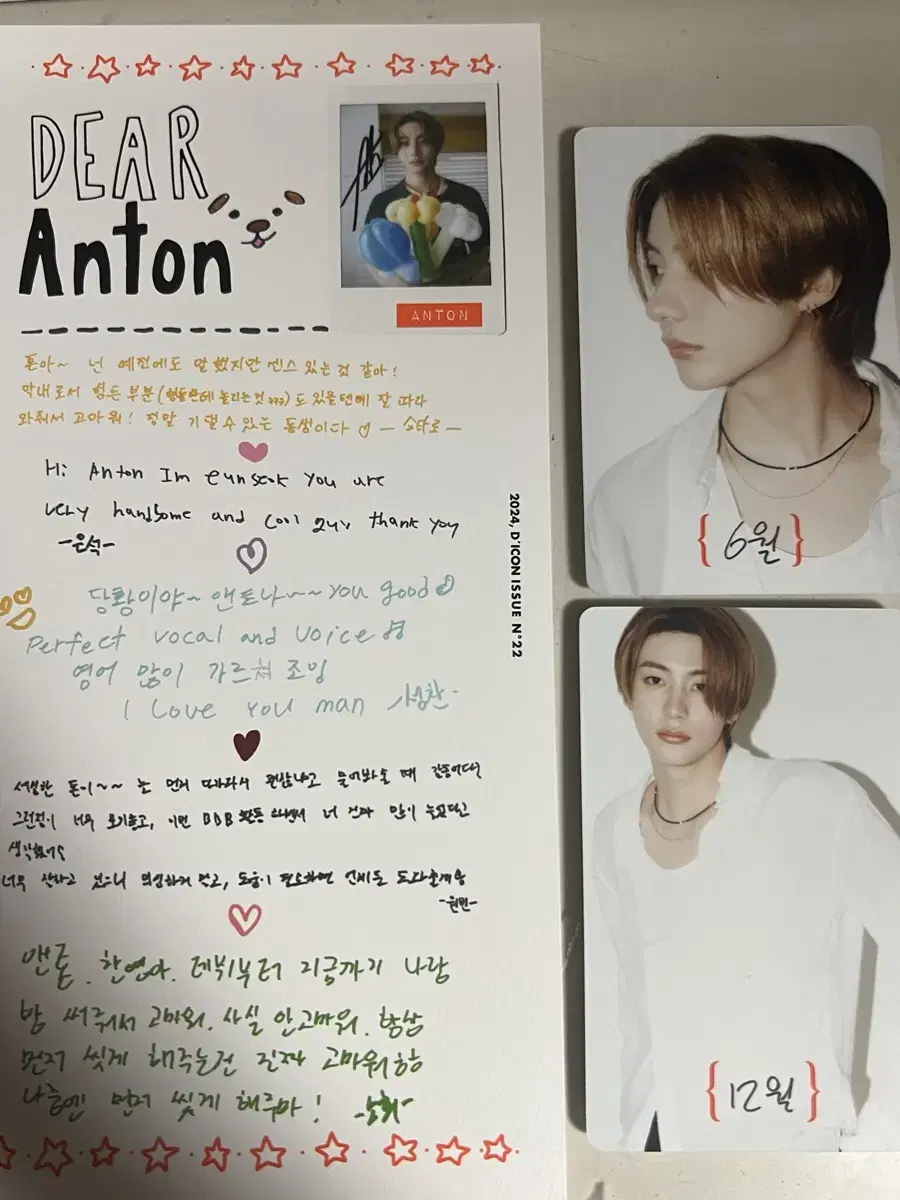 DEAR
Anton
ANTON
톤아~ 넌 예전에도 말했지만 센스 있는 것 같아!
막내로서 힘든 부분(형들한테 놀리는것 ㅋㅋㅋ)도 있을텐데 잘 따라
와줘서 고마워! 정말 기댈 수 있는 동생이다 ♡ - 쇼타로 -
Hi Anton Im eunseok you are
very handsome and cool guy thank you
-은석-
당황이야~ 앤토나~~ you good
Perfect vocal and voice
영어 많이 가르쳐 조잉
I Love You man 성찬-
톤이~~ 먼저 다가와서 괜찮냐고 물어봐줄 때 감동이다
너무 고, 이번 활동 하면서 너 많이 늘었다고
생각했어
너무 잘하고 있으니 의심하지 말고, 도움이 필요하면 언제든 도와줄게
-원빈-
앤톤. 찬영아. 데뷔부터 지금까지 나랑
방 써줘서 고마워. 사실 안고마워. 항상
먼저 씻게 해주는건 진짜 고마워함
나중엔 먼저 씻게 해주마! -소희-
2024, D'ICON ISSUE N°22
{ 6월 }
{ 12월 }